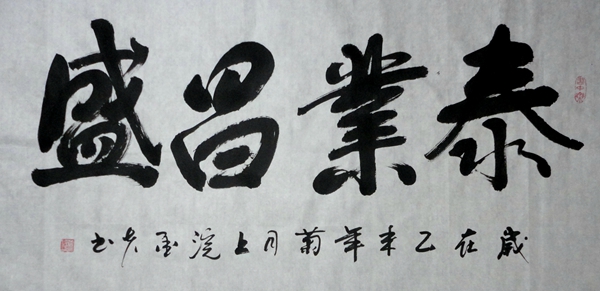 泰業昌盛
歲在乙未年菊月上浣墨者書